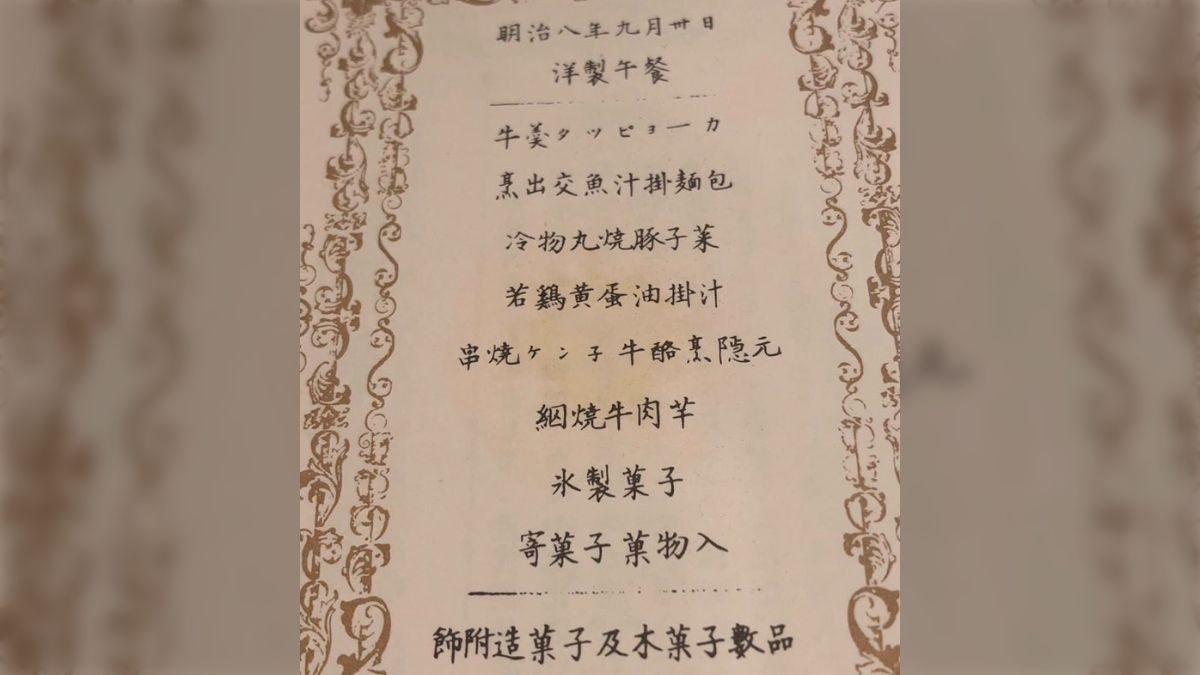 明治八年九月卅日
洋製午餐
牛羹タツピョーカ
烹出交魚汁掛麺包
冷物丸焼豚子菜
若鷄黄蛋油掛汁
串燒ケン子牛酪烹隠元
網燒牛肉芋
氷製菓子
寄菓子菓物入
飾附造菓子及木菓子數品